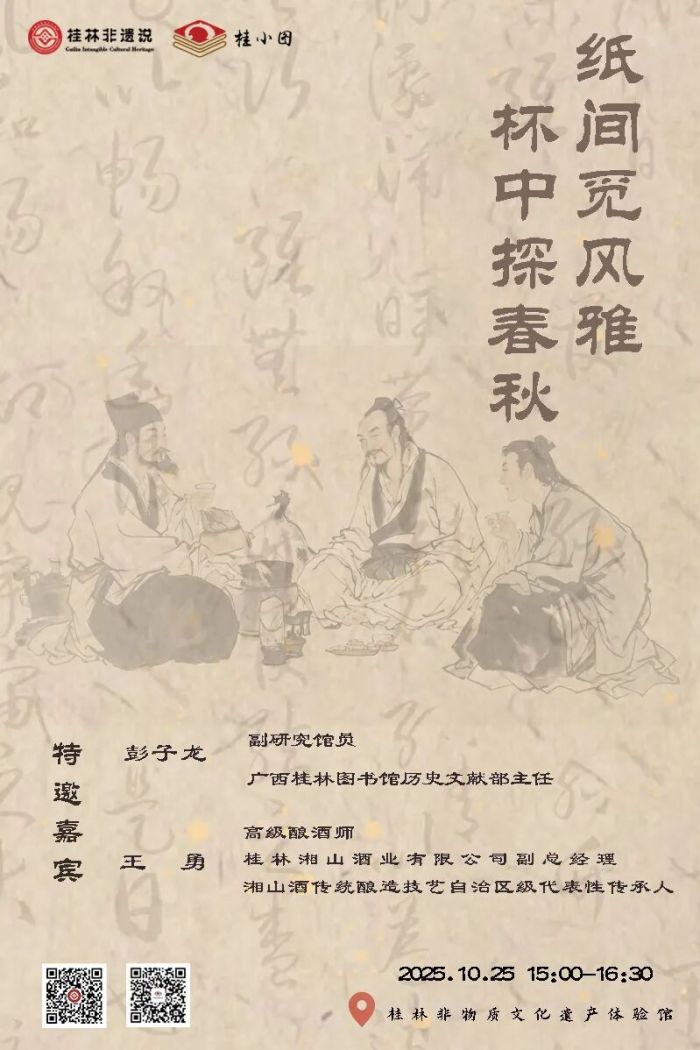 桂林非遗说
Guilin Intangible Cultural Heritage
桂小图
纸间觅风雅
杯中探春秋
特邀嘉宾
彭子龙
副研究馆员
广西桂林图书馆历史文献部主任
王 勇
高级酿酒师
桂林湘山酒业有限公司副总经理
湘山酒传统酿造技艺自治区级代表性传承人
2025.10.25 15:00-16:30
桂林非物质文化遗产体验馆